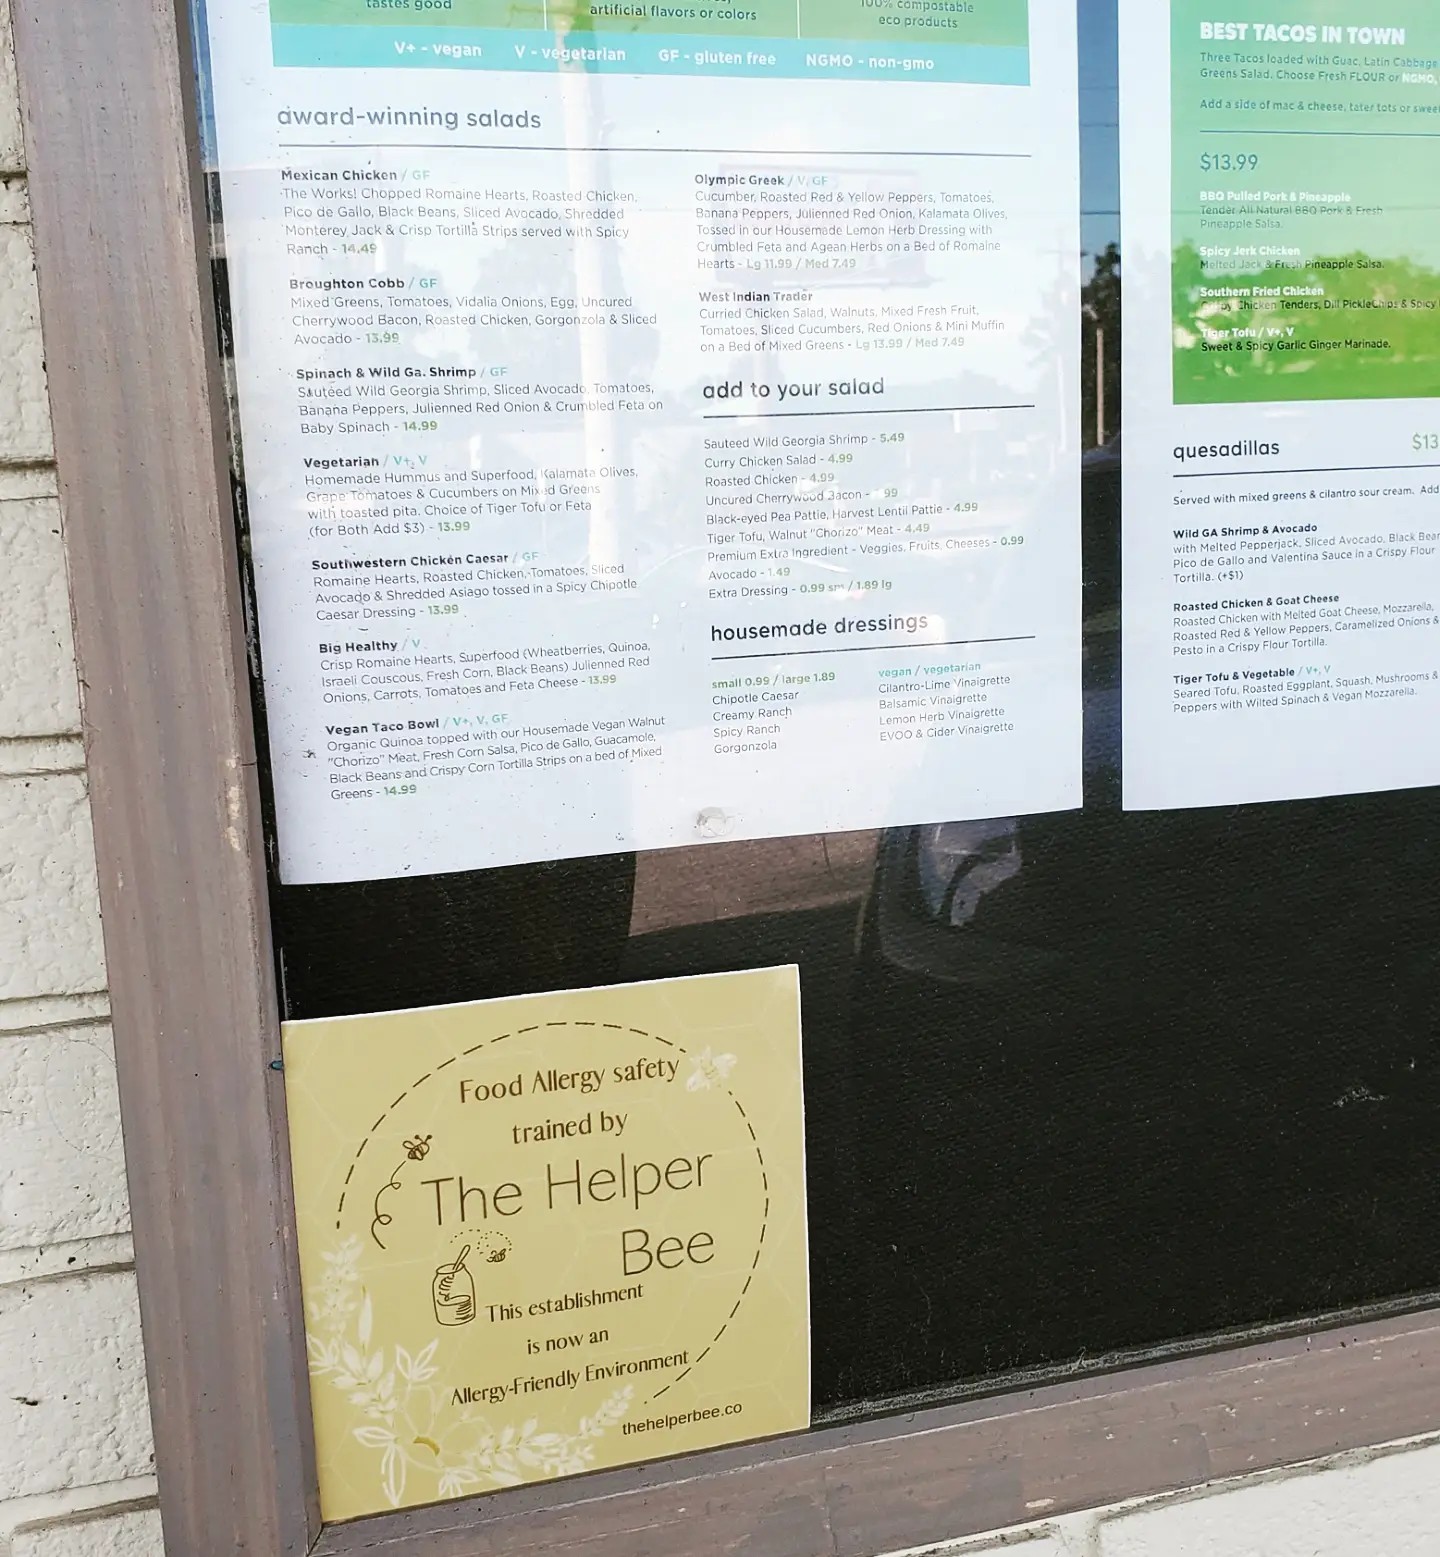 tastes good
artificial flavors or colors
100% compostable
eco products
V+ - vegan V - vegetarian GF - gluten free NGMO - non-gmo
award-winning salads
Mexican Chicken / GF
The Works! Chopped Romaine Hearts, Roasted Chicken,
Pico de Gallo, Black Beans, Sliced Avocado, Shredded
Monterey Jack & Crisp Tortilla Strips served with Spicy
Ranch - 14.49
Broughton Cobb / GF
Mixed Greens, Tomatoes, Vidalia Onions, Egg, Uncured
Cherrywood Bacon, Roasted Chicken, Gorgonzola & Sliced
Avocado - 13.99
Spinach & Wild Ga. Shrimp / GF
Sautéed Wild Georgia Shrimp, Sliced Avocado, Tomatoes,
Banana Peppers, Julienned Red Onion & Crumbled Feta on
Baby Spinach - 14.99
Vegetarian / V+, V
Homemade Hummus and Superfood, Kalamata Olives,
Grape Tomatoes & Cucumbers on Mixed Greens
with toasted pita. Choice of Tiger Tofu or Feta
(for Both Add $3) - 13.99
Southwestern Chicken Caesar / GF
Romaine Hearts, Roasted Chicken, Tomatoes, Sliced
Avocado & Shredded Asiago tossed in a Spicy Chipotle
Caesar Dressing - 13.99
Big Healthy / V
Crisp Romaine Hearts, Superfood (Wheatberries, Quinoa,
Israeli Couscous, Fresh Corn, Black Beans) Julienned Red
Onions, Carrots, Tomatoes and Feta Cheese - 13.99
Vegan Taco Bowl / V+, V, GF
Organic Quinoa topped with our Housemade Vegan Walnut
"Chorizo" Meat, Fresh Corn Salsa, Pico de Gallo, Guacamole,
Black Beans and Crispy Corn Tortilla Strips on a bed of Mixed
Greens - 14.99
Olympic Greek / V, GF
Cucumber, Roasted Red & Yellow Peppers, Tomatoes,
Banana Peppers, Julienned Red Onion, Kalamata Olives,
Tossed in our Housemade Lemon Herb Dressing with
Crumbled Feta and Agean Herbs on a Bed of Romaine
Hearts - Lg 11.99 / Med 7.49
West Indian Trader
Curried Chicken Salad, Walnuts, Mixed Fresh Fruit,
Tomatoes, Sliced Cucumbers, Red Onions & Mini Muffin
on a Bed of Mixed Greens - Lg 13.99 / Med 7.49
add to your salad
Sauteed Wild Georgia Shrimp - 5.49
Curry Chicken Salad - 4.99
Roasted Chicken - 4.99
Uncured Cherrywood Bacon - 99
Black-eyed Pea Pattie, Harvest Lentil Pattie - 4.99
Tiger Tofu, Walnut "Chorizo" Meat - 4.49
Premium Extra Ingredient - Veggies, Fruits, Cheeses - 0.99
Avocado - 1.49
Extra Dressing - 0.99 sm / 1.89 lg
housemade dressings
small 0.99 / large 1.89
Chipotle Caesar
Creamy Ranch
Spicy Ranch
Gorgonzola
vegan / vegetarian
Cilantro-Lime Vinaigrette
Balsamic Vinaigrette
Lemon Herb Vinaigrette
EVOO & Cider Vinaigrette
BEST TACOS IN TOWN
Three Tacos loaded with Guac, Latin Cabbage
Greens Salad. Choose Fresh FLOUR or NGMO,
Add a side of mac & cheese, tater tots or sweet
$13.99
BBQ Pulled Pork & Pineapple
Tender All Natural BBQ Pork & Fresh
Pineapple Salsa.
Spicy Jerk Chicken
Melted Jack & Fresh Pineapple Salsa.
Southern Fried Chicken
Crispy Chicken Tenders, Dill PickleChips & Spicy
Tiger Tofu / V+, V
Sweet & Spicy Garlic Ginger Marinade.
quesadillas $13
Served with mixed greens & cilantro sour cream. Add
Wild GA Shrimp & Avocado
with Melted Pepperjack, Sliced Avocado, Black Bean
Pico de Gallo and Valentina Sauce in a Crispy Flour
Tortilla. (+$1)
Roasted Chicken & Goat Cheese
Roasted Chicken with Melted Goat Cheese, Mozzarella,
Roasted Red & Yellow Peppers, Caramelized Onions &
Pesto in a Crispy Flour Tortilla.
Tiger Tofu & Vegetable / V+, V
Seared Tofu, Roasted Eggplant, Squash, Mushrooms &
Peppers with Wilted Spinach & Vegan Mozzarella.
Food Allergy safety
trained by
The Helper
Bee
This establishment
is now an
Allergy-Friendly Environment
thehelperbee.co